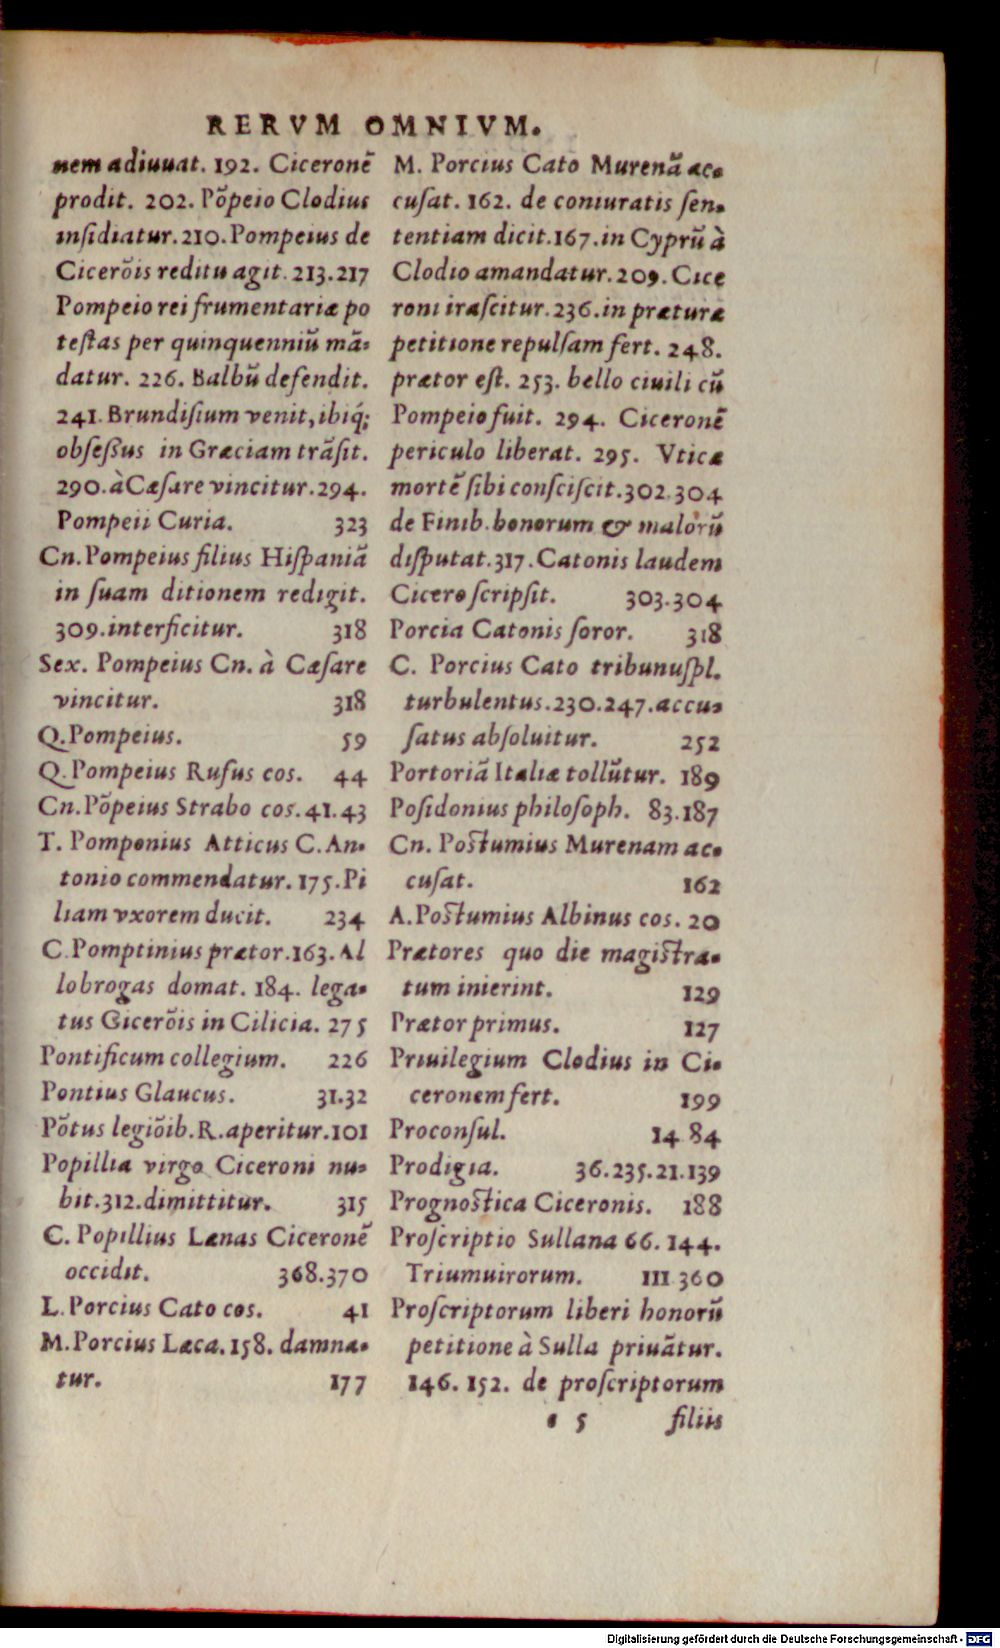 RERVM OMNIVM.
nem adiuuat. 192. Ciceronē
prodit. 202. Pōpeio Clodius
insidiatur. 210. Pompeius de
Cicerōis reditu agit. 213.217
Pompeio rei frumentariæ po
teſtas per quinquenniū mā-
datur. 226. Balbū defendit.
241. Brundiſium venit, ibiq́;
obſeßus in Græciam trāſit.
290. à Cæſare vincitur. 294.
Pompeii Curia. 323
Cn. Pompeius filius Hiſpaniā
in ſuam ditionem redigit.
309. interficitur. 318
Sex. Pompeius Cn. à Cæſare
vincitur. 318
Q. Pompeius. 59
Q. Pompeius Rufus cos. 44
Cn. Pōpeius Strabo cos. 41.43
T. Pomponius Atticus C. An-
tonio commendatur. 175. Pi
liam vxorem ducit. 234
C. Pomptinius prætor. 163. Al
lobrogas domat. 184. lega-
tus Gicerōis in Cilicia. 275
Pontificum collegium. 226
Pontius Glaucus. 31.32
Pōtus legiōib. R. aperitur. 101
Popillia virgo Ciceroni nu-
bit. 312. dimittitur. 315
C. Popillius Lænas Ciceronē
occidit. 368.370
L. Porcius Cato cos. 41
M. Porcius Læca. 158. damna-
tur. 177
M. Porcius Cato Murenā ac-
cuſat. 162. de coniuratis ſen-
tentiam dicit. 167. in Cyprū à
Clodio amandatur. 209. Cice
roni iraſcitur. 236. in præturæ
petitione repulſam fert. 248.
prætor eſt. 253. bello ciuili cū
Pompeio fuit. 294. Ciceronē
periculo liberat. 295. Vticæ
mortē ſibi conſciſcit. 302.304
de Finib. bonorum & malorū
diſputat. 317. Catonis laudem
Cicero ſcripſit. 303.304
Porcia Catonis ſoror. 318
C. Porcius Cato tribunuſpl.
turbulentus. 230.247. accu-
ſatus abſoluitur. 252
Portoriā Italiæ tollūtur. 189
Poſidonius philoſoph. 83.187
Cn. Poſtumius Murenam ac-
cuſat. 162
A. Poſtumius Albinus cos. 20
Prætores quo die magiſtra-
tum inierint. 129
Prætor primus. 127
Priuilegium Clodius in Ci-
ceronem fert. 199
Proconſul. 14 84
Prodigia. 36.235.21.139
Prognoſtica Ciceronis. 188
Proſcriptio Sullana 66. 144.
Triumuirorum. 111.360
Proſcriptorum liberi honorū
petitione à Sulla priuātur.
146. 152. de proſcriptorum
5 filiis
Digitalisierung gefördert durch die Deutsche Forschungsgemeinschaft - DFG